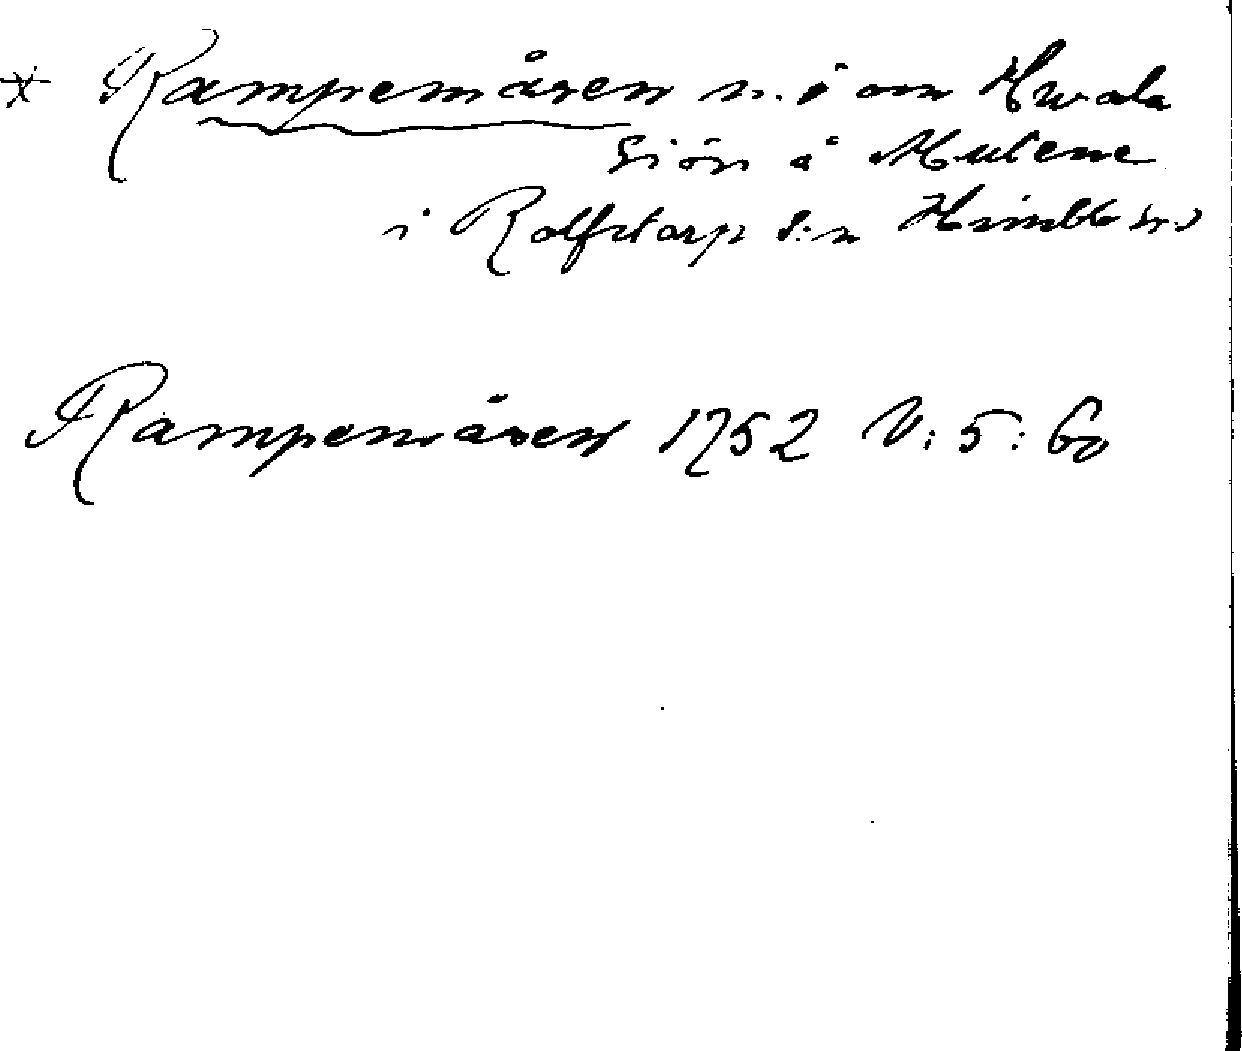 * Rampemåsen n. ö om Hwala
Siön å Mutene
i Rolfstorp s:n Himble hd
Rampemåsen 1752 V: 5: 60